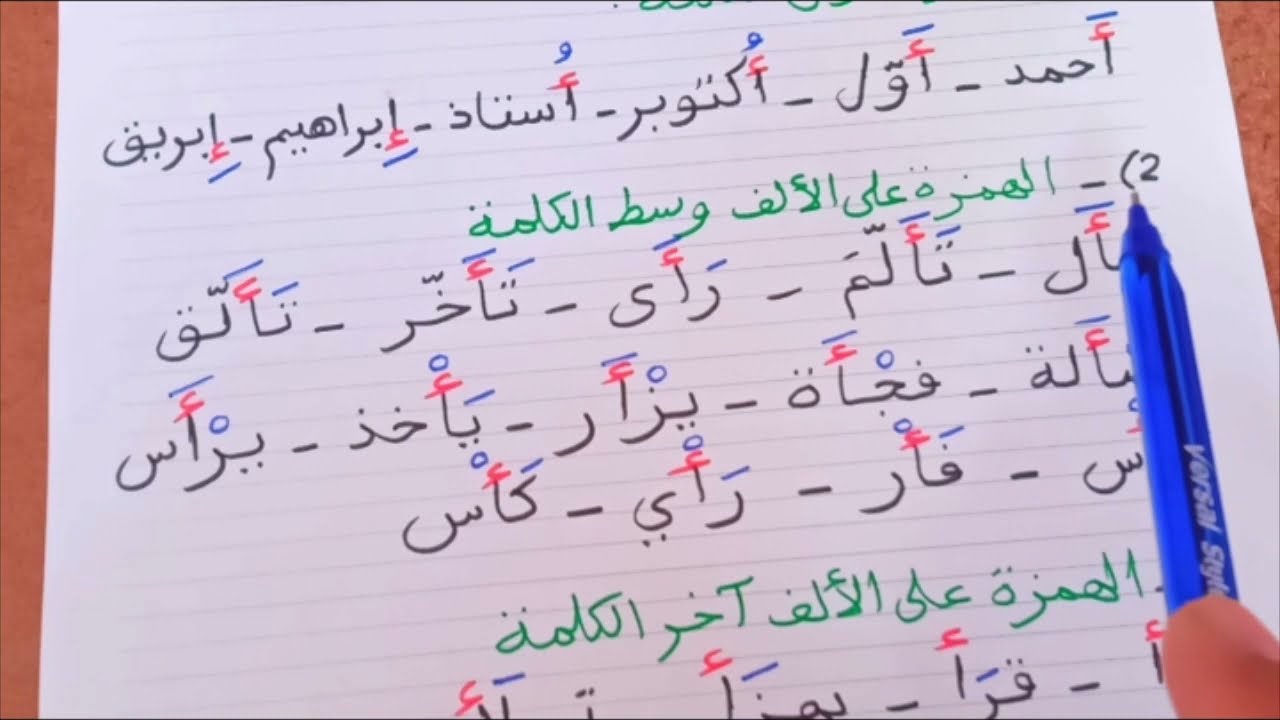 أَحمد - أَوّل - أُكتوبر - أُستاذ - إِبراهيم - إِبريق
2) - الهمزة على الألف وسط الكلمة
تَأَلّمَ - رَأَى - تَأَخّر - تَأَلّق
فجْأَة - يزْأَر - يَأْخذ - يرْأَس
فَأْر - رَأْي - كَأْس
الهمزة على الألف آخر الكلمة
قرَأ
Versal